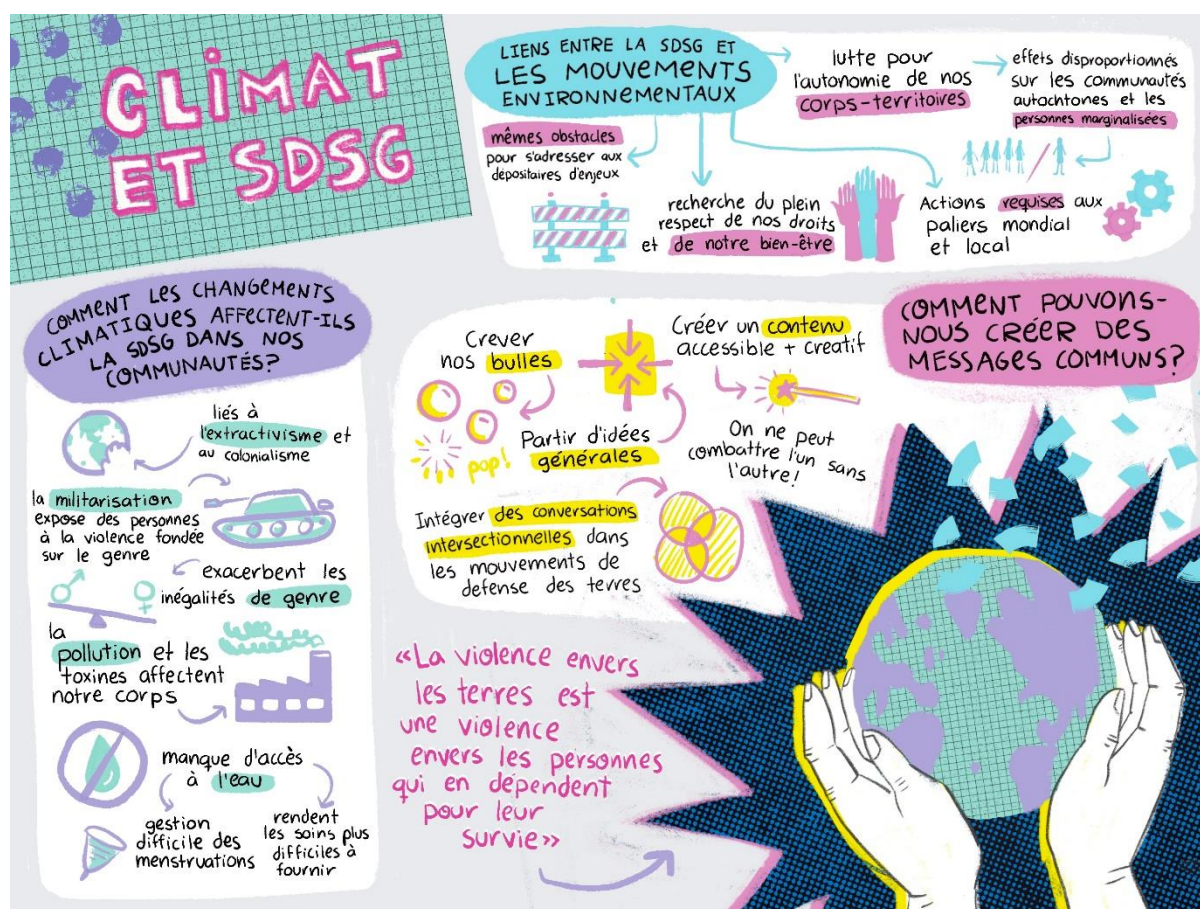 CLIMAT
ET SDSG
LIENS ENTRE LA SDSG ET
LES MOUVEMENTS
ENVIRONNEMENTAUX
lutte pour
l'autonomie de nos
corps-territoires
effets disproportionnés
sur les communautés
autochtones et les
personnes marginalisées
mêmes obstacles
pour s'adresser aux
dépositaires d'enjeux
recherche du plein
respect de nos droits
et de notre bien-être
Actions requises aux
paliers mondial
et local
COMMENT LES CHANGEMENTS
CLIMATIQUES AFFECTENT-ILS
LA SDSG DANS NOS
COMMUNAUTÉS?
liés à
l'extractivisme et
au colonialisme
la militarisation
expose des personnes
à la violence fondée
sur le genre
exacerbent les
inégalités de genre
la
pollution et les
toxines affectent
notre corps
manque d'accès
à l'eau
gestion
difficile des
menstruations
rendent
les soins plus
difficiles à
fournir
COMMENT POUVONS-
NOUS CRÉER DES
MESSAGES COMMUNS?
Crever
nos bulles
pop!
Partir d'idées
générales
Créer un contenu
accessible + creatif
On ne peut
combattre l'un sans
l'autre!
Intégrer des conversations
intersectionnelles dans
les mouvements de
defense des terres
«La violence envers
les terres est
une violence
envers les personnes
qui en dépendent
pour leur
survie»